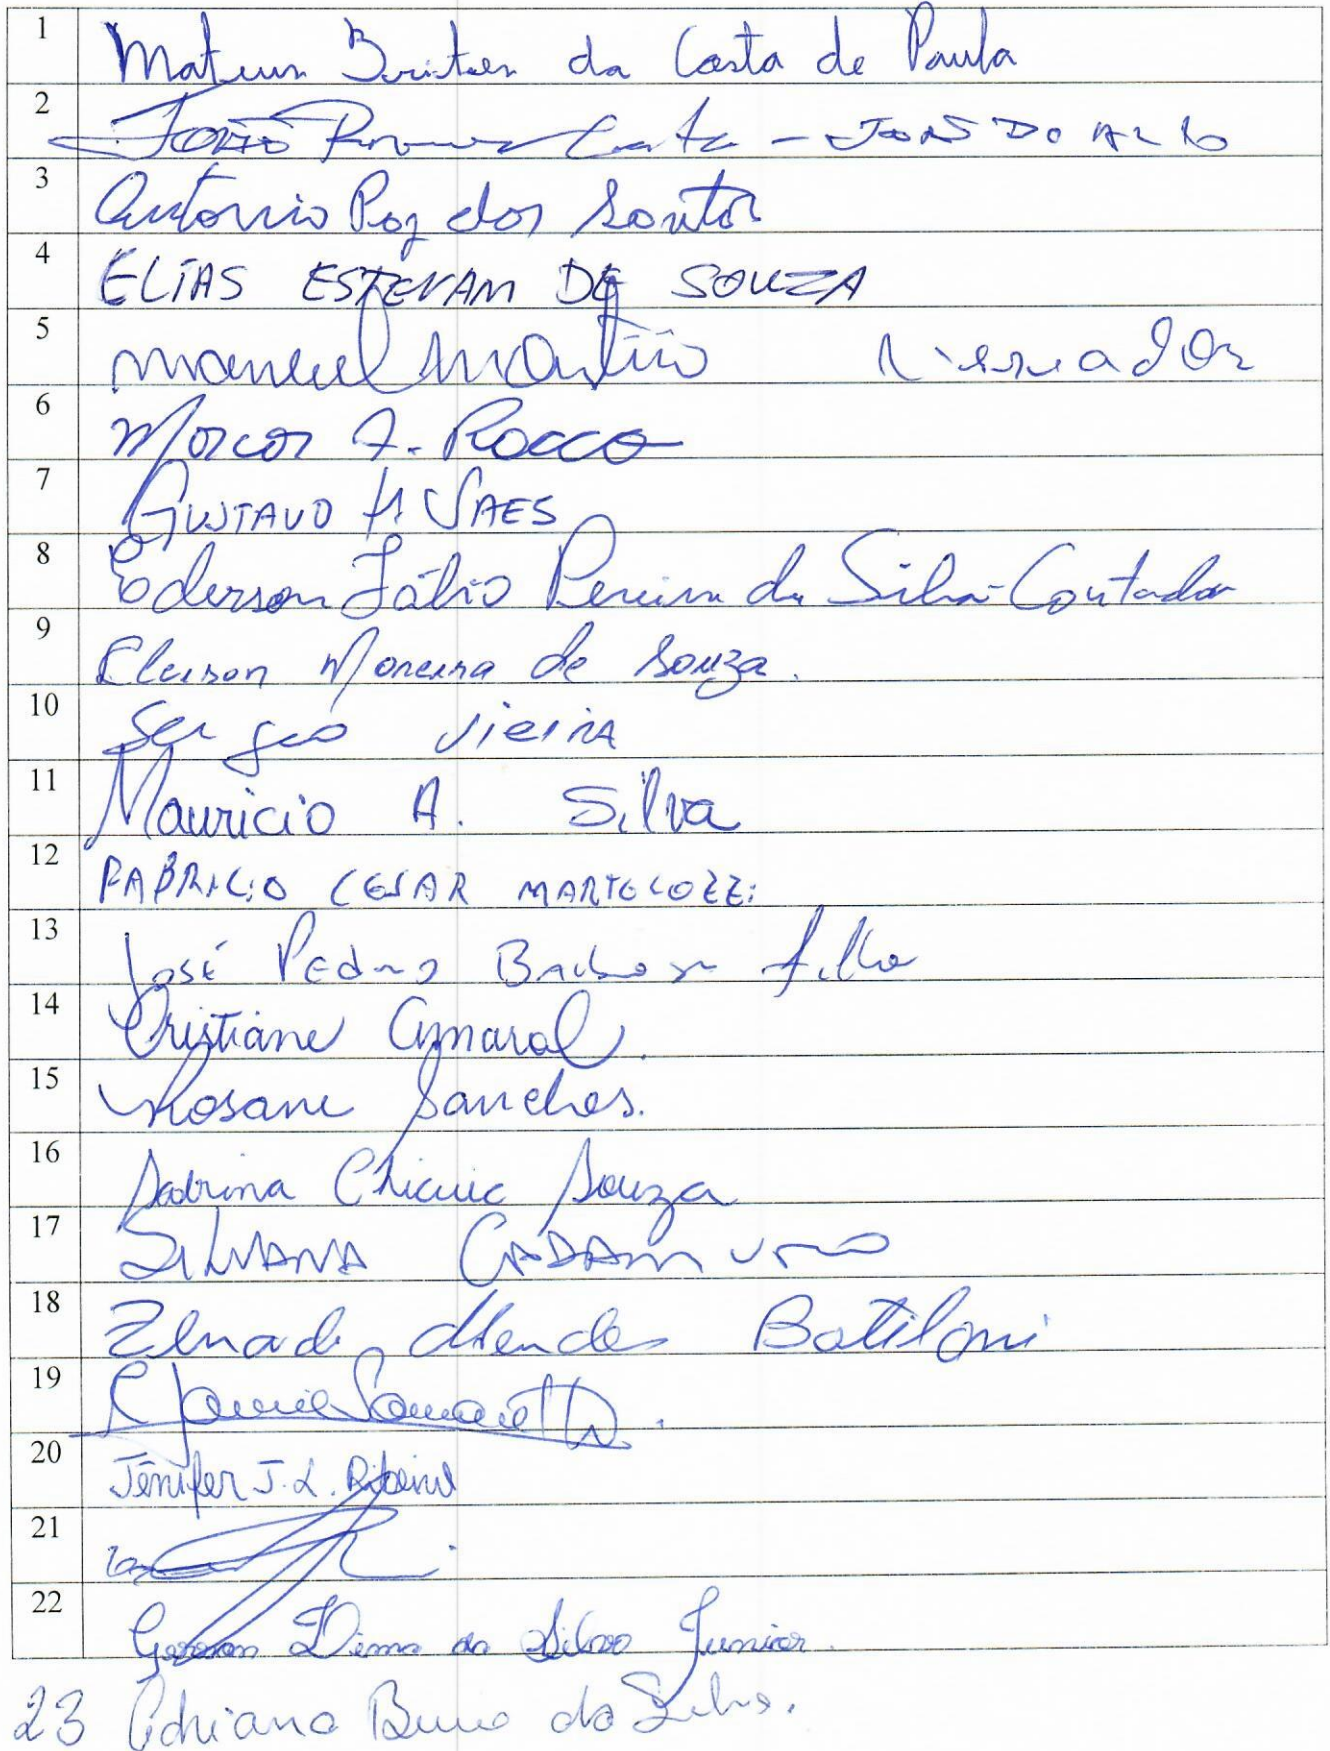 1 Mateus da Costa de Paula
2 João Costa - João do Alho
3 Antonio Paz dos Santos
4 ELIAS ESTEVAM DE SOUZA
5 Manuel Martins Vereador
6 Marcos A. Rocco
7 GUSTAVO H VAES
8 Ederson Fábio Pereira da Silva - Contador
9 Cleison Moreira de Souza.
10 Sergio Vieira
11 Mauricio A. Silva
12 FABRICIO CESAR MARTELOZZi
13 José Pedro Barbosa Filho
14 Cristiane Amaral.
15 Rosane Sanches.
16 Sabrina Souza
17 SILVANA CADAMURO
18 Mendes Batiloni
19
20 Jênifer J. L. Ribeiro
21
22 Gerson Lima da Silva Junior.
23 Adriana Bueno da Silva.